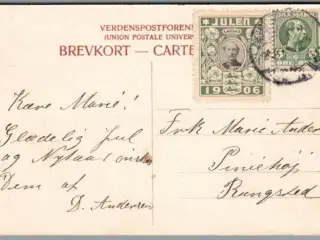 VERDENSPOSTFORENI
(UNION POSTALE UNIVER
BREVKORT — CARTE
JULEN
1906
Kære Marie!
Glædelig Jul
og Nytaar ønskes
Dem af
D. Andersen
Frk Marie Ander
Piniehøj
Rungsted